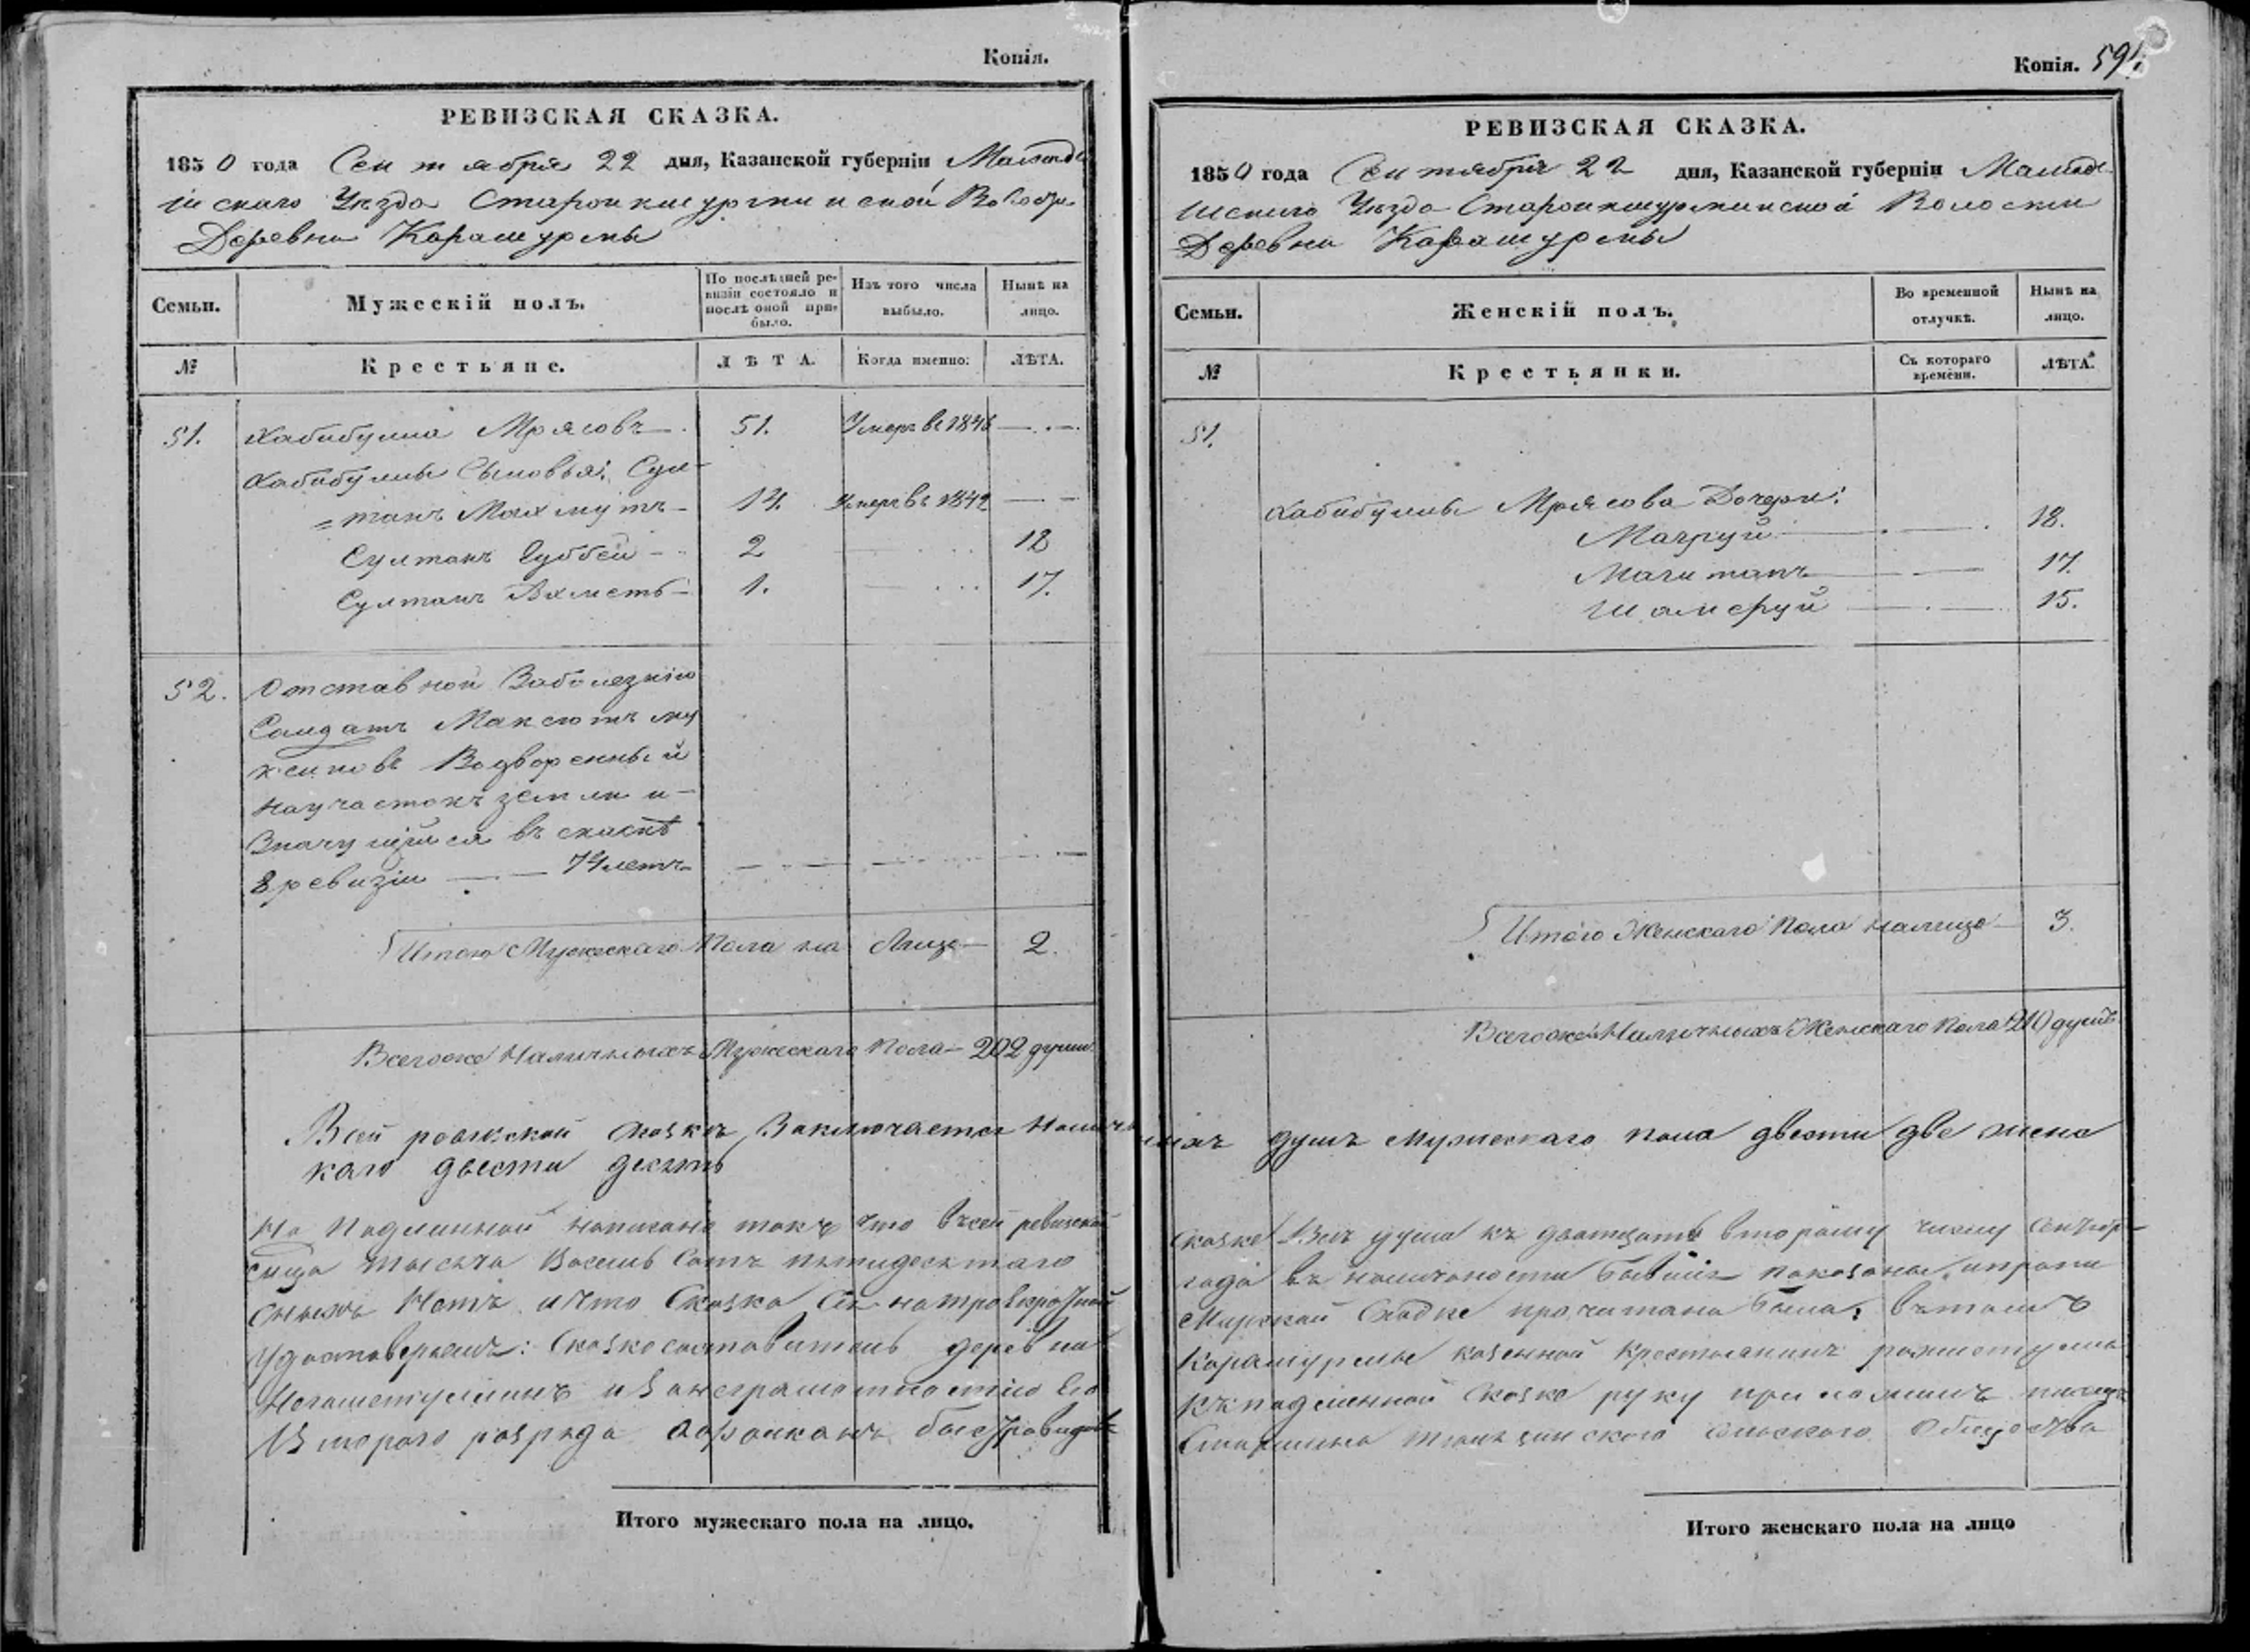 Копія.
РЕВИЗСКАЯ СКАЗКА.
1850 года Сентября 22 дня, Казанской губерніи Мамады
шскаго Уѣзда Старокишурминской
Деревни Карашурмы
Семьи.
Мужескій полъ.
По послѣдней ре-
визіи состояло и
послѣ оной при-
было.
Изъ того числа
выбыло.
Нынѣ на
лицо.
№
Крестьяне.
ЛѢТА.
Когда именно:
ЛѢТА.
51. Хабибулла Мрясовъ 51. Умеръ въ 1846
Хабибуллы Сыновья: Сул-
=танъ Махмутъ 14. Умеръ въ 1842
Султанъ 2 18
Султанъ Ахметь 1. 17.
52. Отставной Заболезнію
Солдатъ Максютъ Му
Водворенный
научастокъ земли и-
Значущійся въ скаскѣ
8 ревизіи 74 летъ
Итого Мужескаго Пола на Лицо 2.
Всегоже Наличныхъ Мужескаго пола 202 души
Копія. 591.
РЕВИЗСКАЯ СКАЗКА.
1850 года Сентября 22 дня, Казанской губерніи Мамады
шскаго Уѣзда Старокишурминской Волости
Деревни Карашурмы
Семьи.
Женскій полъ.
Во временной
отлучкѣ.
Нынѣ на
лицо.
№
Крестьянки.
Съ котораго
времени.
ЛѢТА.
51.
Хабибуллы Мрясова Дочери:
Магруй 18.
Магитапъ 17.
Шамеруй 15.
Итого Женскаго Пола налицо 3.
Всегоже Наличныхъ Женскаго Пола 210 душъ
Всей ревизской сказкѣ Заключается Наличныхъ душъ мужескаго пола двести две женс
каго двести десять
На Подлинной написано такъ что всей ревизской сказке Все души къ дватцать второму числу Сентяб-
тысяча Восемь Сотъ пятидесятаго года въ наличности бывшія показаны, и
Нетъ и что Сказка Сія Мирской Сходке прочитана была, въ томъ
Удостоверяемъ: Сказкосоставитель деревни Карашурмы казенной крестьянинъ
и За неграмотностію Его Къ подлинной Сказке руку приложилъ
Втораго разряда Старшина сельскаго Общества
Итого мужескаго пола на лицо.
Итого женскаго пола на лицо